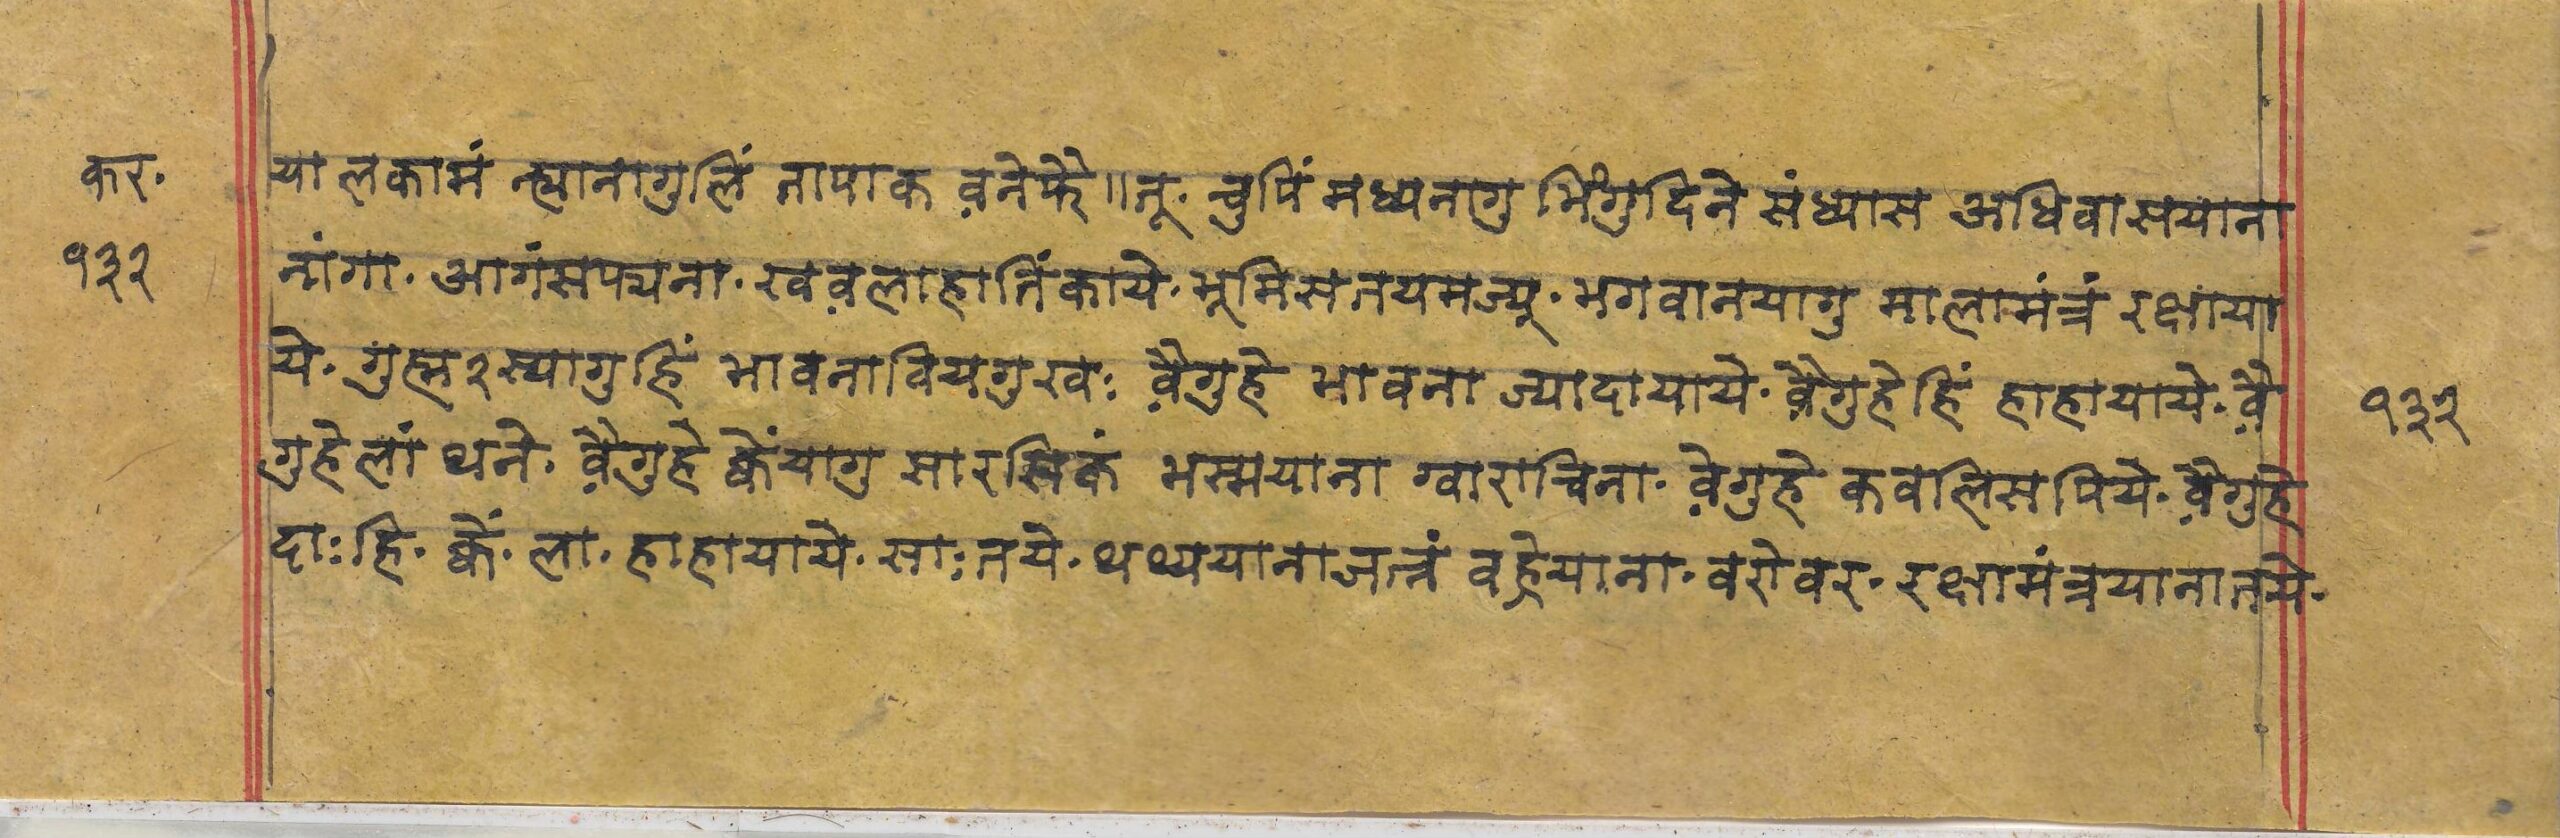 कर. यालकामं न्ह्यानागुलिं नापाक व़नेफै॥नू. चुपिं मध्यनागु भिंगुदिने संध्यास अधिवासयाना
१३२ नांगा. आगंसप्यना. खव़लाहातिंकाये. भूमिसतयमज्यू. भगवानयागु मालामंत्रं रक्षाया
ये. गुह्म२स्यागुहिं भावनावियगुखः व़ैगुहे भावना ज्यादायाये. व़ैगुहेहिं हाहायाये. व़ै १३२
गुहेलां थने. व़ैगुहे क्वेंयागु सारस्विकं भस्मयाना ग्वाराचिना. व़ेगुहे कवलिसपिये. व़ैगुहे
दाःहि. क्वें. ला. हाहायाये. साःतये. थथ्ययानाजत्नं वहेयाना. वरोवर. रक्षामंत्रयानातये.